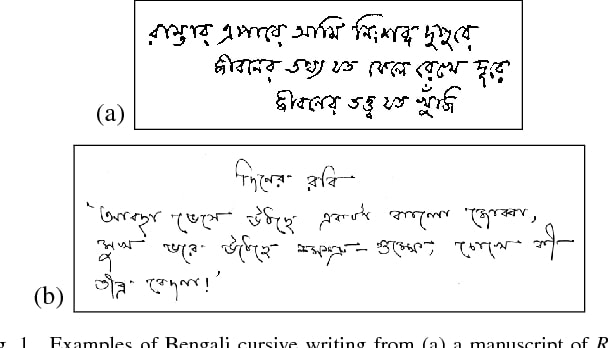 (a)
রাস্তার এপারে আমি নিঃশব্দ দুপুরে
জীবনের তথ্য যত ফেলে রেখে দূরে
জীবনের তত্ত্ব যত খুঁজি
(b)
দিনের রবি
'আবছা ভেসে উঠছে একটা কালো জোব্বা,
মুখ ভরে উঠছে শ্মশ্রু-গুম্ফে, চোখে কী
তীব্র বেদনা!'
Fig. 1. Examples of Bengali cursive writing from (a) a manuscript of